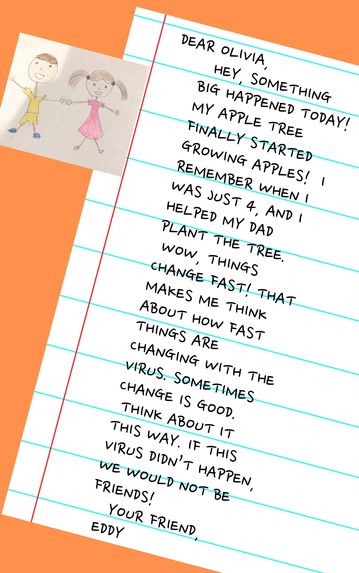 DEAR OLIVIA,
HEY, SOMETHING
BIG HAPPENED TODAY!
MY APPLE TREE
FINALLY STARTED
GROWING APPLES! I
REMEMBER WHEN I
WAS JUST 4, AND I
HELPED MY DAD
PLANT THE TREE.
WOW, THINGS
CHANGE FAST! THAT
MAKES ME THINK
ABOUT HOW FAST
THINGS ARE
CHANGING WITH THE
VIRUS. SOMETIMES
CHANGE IS GOOD.
THINK ABOUT IT
THIS WAY. IF THIS
VIRUS DIDN'T HAPPEN,
WE WOULD NOT BE
FRIENDS!
YOUR FRIEND,
EDDY